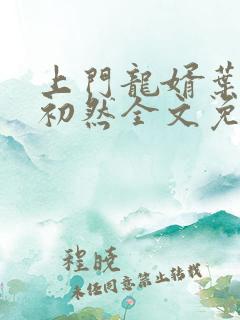 上門龍婿葉
初然全文免
程曉
未任同意禁止转载